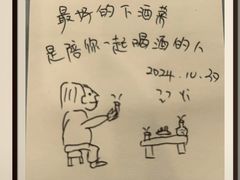 最好的下酒菜
是陪你一起喝酒的人
2024.10.30